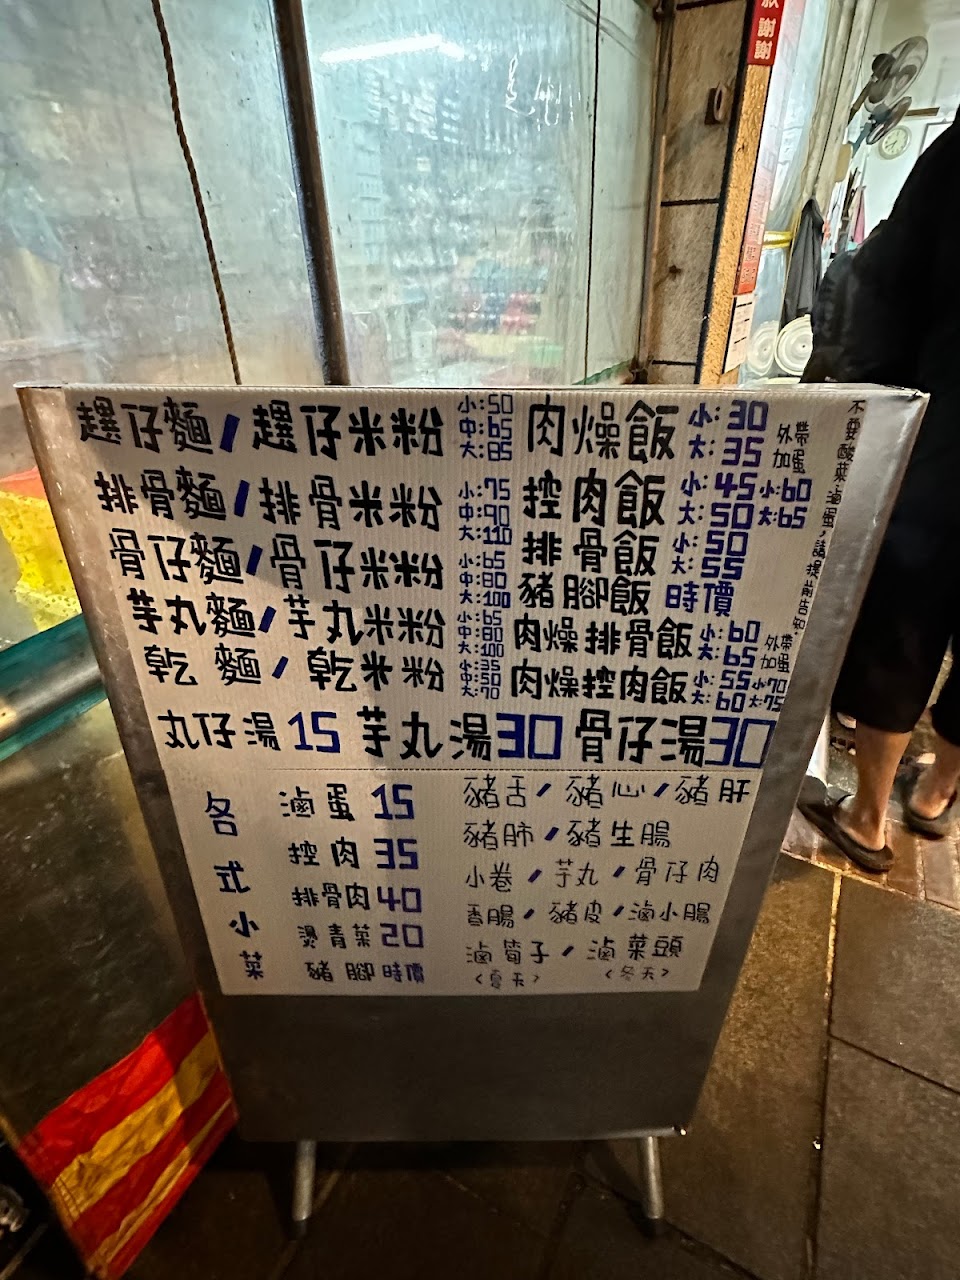 謝謝
趖仔麵/趖仔米粉 小:50 中:65 大:85
排骨麵/排骨米粉 小:75 中:90 大:110
骨仔麵/骨仔米粉 小:65 中:80 大:100
芋丸麵/芋丸米粉 小:65 中:80 大:100
乾麵/乾米粉 小:35 中:50 大:70
肉燥飯 小:30 大:35
外帶加蛋
控肉飯 小:45 大:50 小:60 大:65
排骨飯 小:50 大:55
豬腳飯 時價
肉燥排骨飯 小:60 大:65
外帶加蛋
肉燥控肉飯 小:55 大:60 小:70 大:75
不要酸菜滷蛋,請提前告知
丸仔湯15 芋丸湯30 骨仔湯30
各式小菜
滷蛋15
控肉35
排骨肉40
燙青菜20
豬腳時價
豬舌/豬心/豬肝
豬肺/豬生腸
小卷/芋丸/骨仔肉
香腸/豬皮/滷小腸
滷筍子/滷菜頭
<夏天> <冬天>